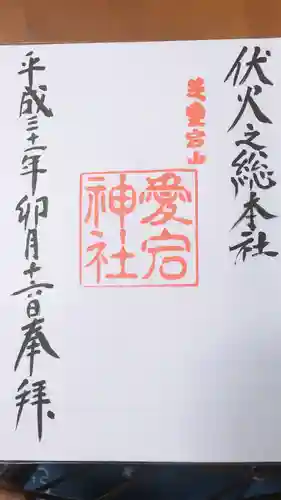 伏火之総本社
芝愛宕山
愛宕
神社
平成三十一年卯月十六日奉拝